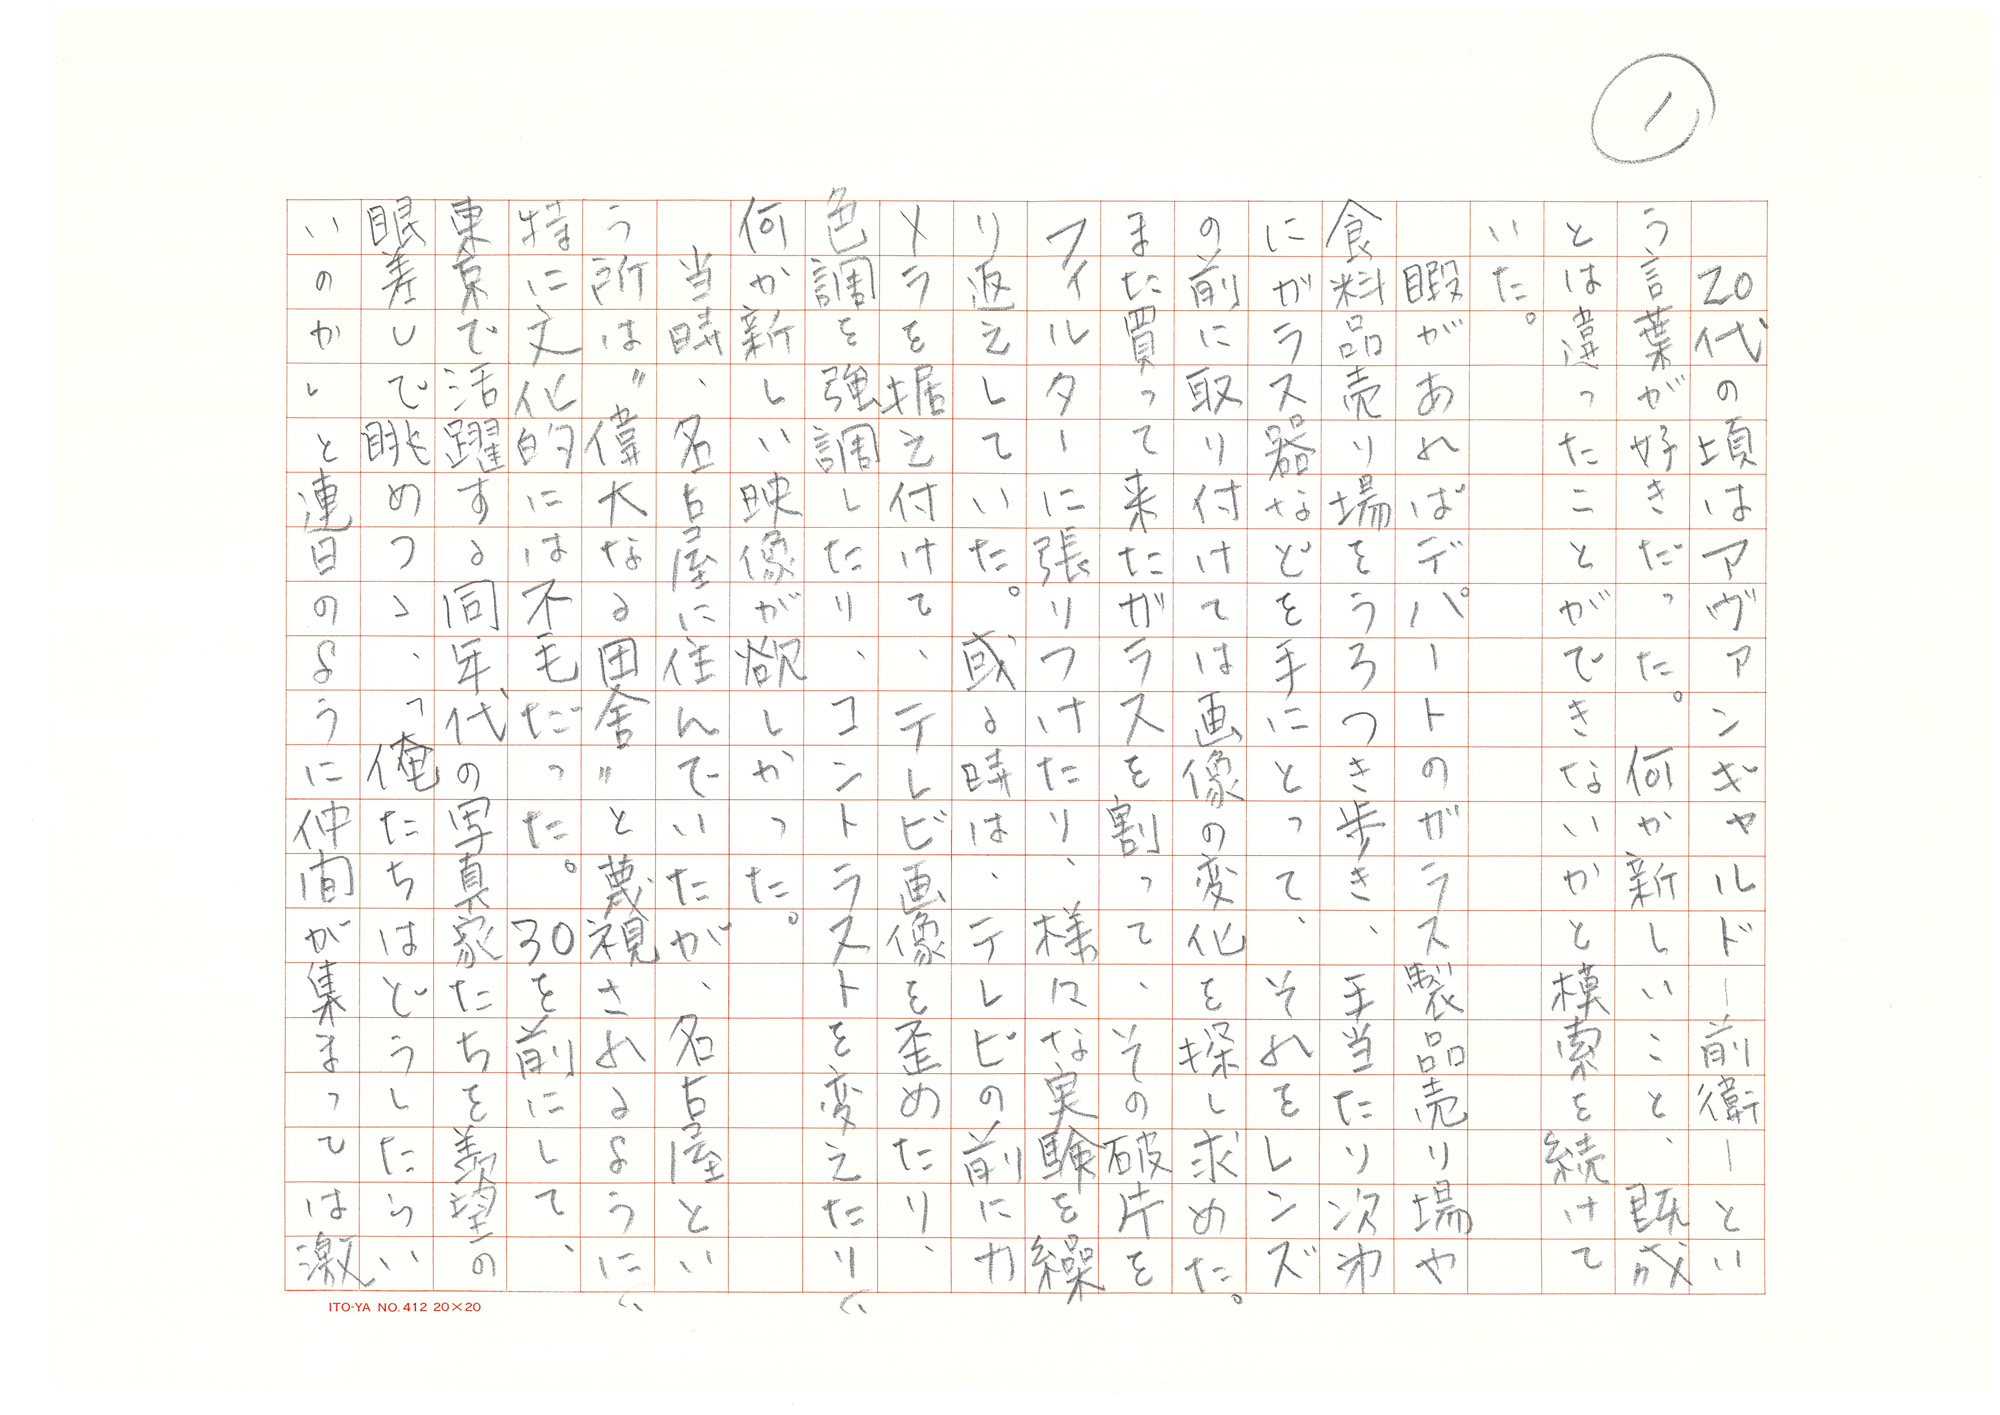 1
20代の頃はアヴァンギャルドー前衛ーとい
う言葉が好きだった。何か新しいこと、既成
とは違ったことができないかと模索を続けて
いた。
暇があればデパートのガラス製品売り場や
食料品売り場をうろつき歩き、手当たり次第
にガラス器などを手にとって、それをレンズ
の前に取り付けては画像の変化を探し求めた。
また買って来たガラスを割って、その破片を
フィルターに張りつけたり、様々な実験を繰
り返えしていた。或る時は、テレビの前にカ
メラを据え付けて、テレビ画像を歪めたり、
色調を強調したり、コントラストを変えたり、
何か新しい映像が欲しかった。
当時、名古屋に住んでいたが、名古屋とい
う所は〝偉大なる田舎〟と蔑視されるように、
特に文化的には不毛だった。30を前にして、
東京で活躍する同年代の写真家たちを羨望の
眼差しで眺めつゝ、「俺たちはどうしたらい
いのか」と連日のように仲間が集まっては激
ITO-YA NO.412 20×20